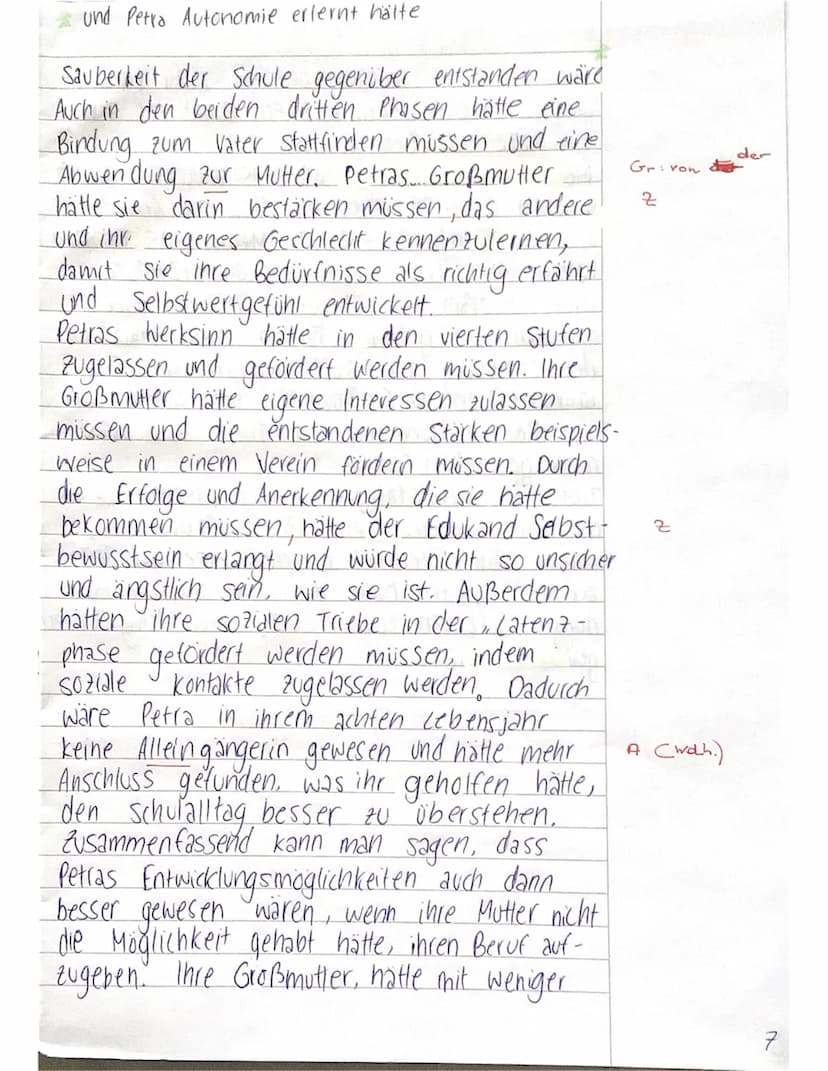 * und Petra Autonomie erlernt hätte
*
Sauberkeit der Schule gegenüber entstanden wäre
Auch in den beiden dritten Phasen hätte eine
Bindung zum Vater stattfinden müssen und eine
Abwendung zur Mutter. Petras Großmutter
Gr: von der
hätte sie darin bestärken müssen, das andere
Z
und ihr eigenes Geschlecht kennenzulernen,
damit sie ihre Bedürfnisse als richtig erfährt
und Selbstwertgefühl entwickelt.
Petras Werksinn hätte in den vierten Stufen
zugelassen und gefördert werden müssen. Ihre
Großmutter hätte eigene Interessen zulassen
müssen und die entstandenen Stärken beispiels-
weise in einem Verein fördern müssen. Durch
die Erfolge und Anerkennung, die sie hätte
bekommen müssen, hätte der Edukand Selbst-
Z
bewusstsein erlangt und würde nicht so unsicher
und ängstlich sein, wie sie ist. Außerdem
hätten ihre sozialen Triebe in der „Latenz-
phase gefördert werden müssen, indem
soziale Kontakte zugelassen werden. Dadurch
wäre Petra in ihrem achten Lebensjahr
keine Alleingängerin gewesen und hätte mehr
A (Wdh.)
Anschluss gefunden, was ihr geholfen hätte,
den Schulalltag besser zu überstehen.
Zusammenfassend kann man sagen, dass
Petras Entwicklungsmöglichkeiten auch dann
besser gewesen wären, wenn ihre Mutter nicht
die Möglichkeit gehabt hätte, ihren Beruf auf-
zugeben. Ihre Großmutter, hätte mit weniger
7